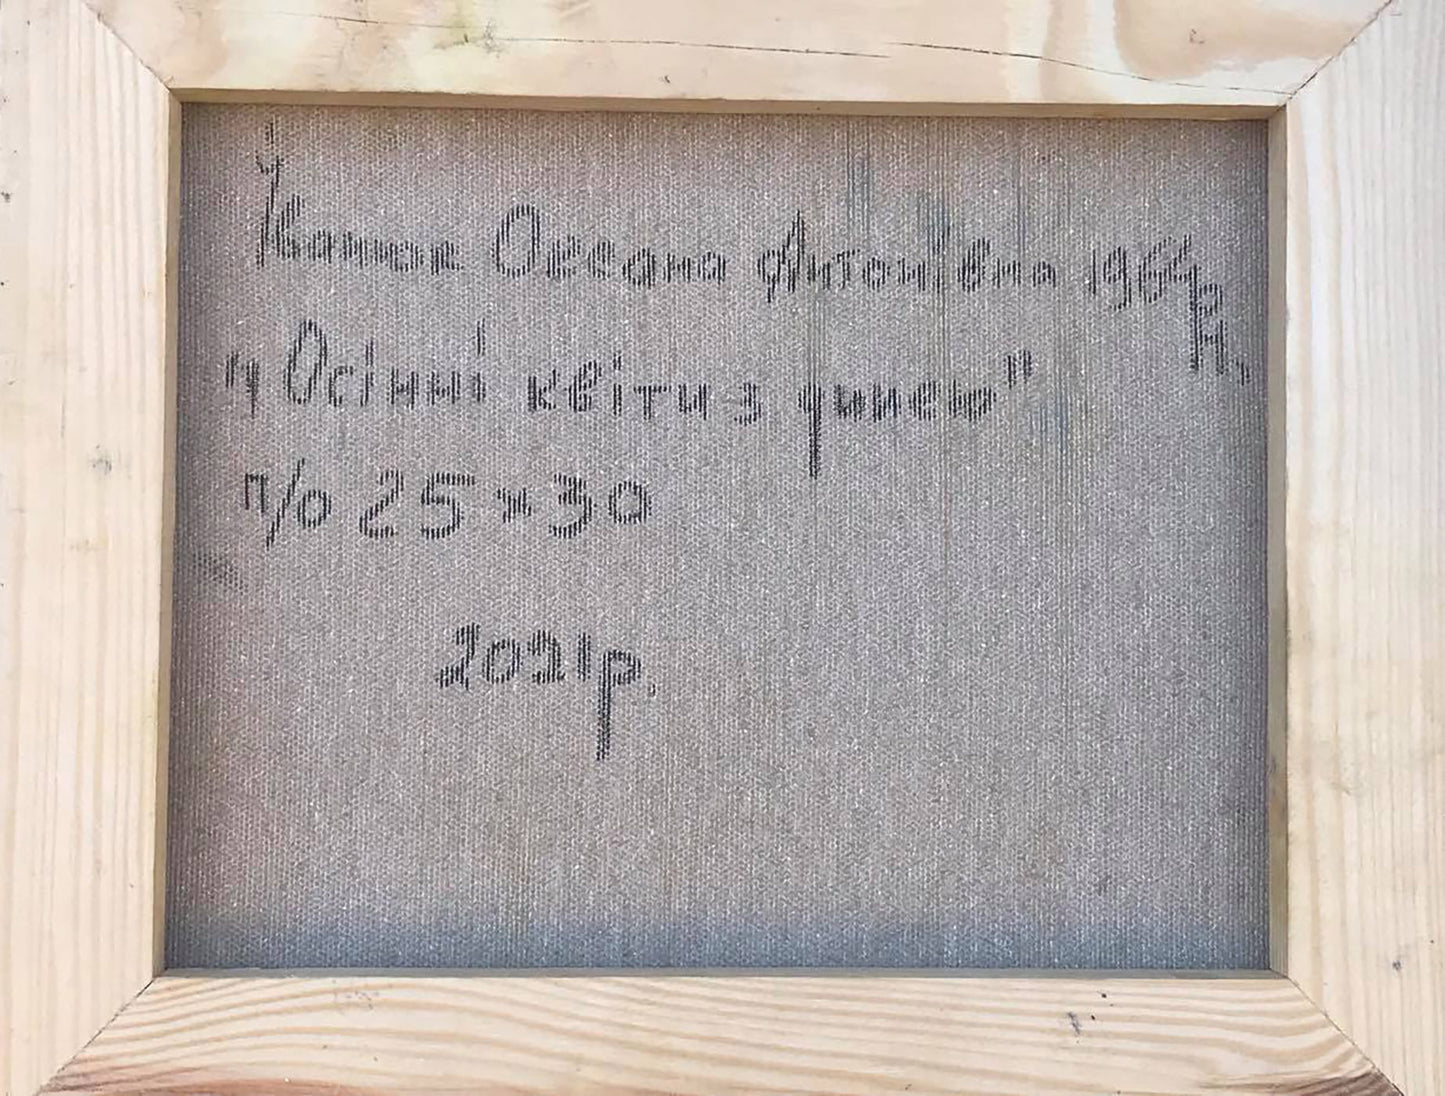 Канюк Оксана Антонівна 1964 р н.
"Осінні квіти з динею"
п/о 25 х 30
2021р.